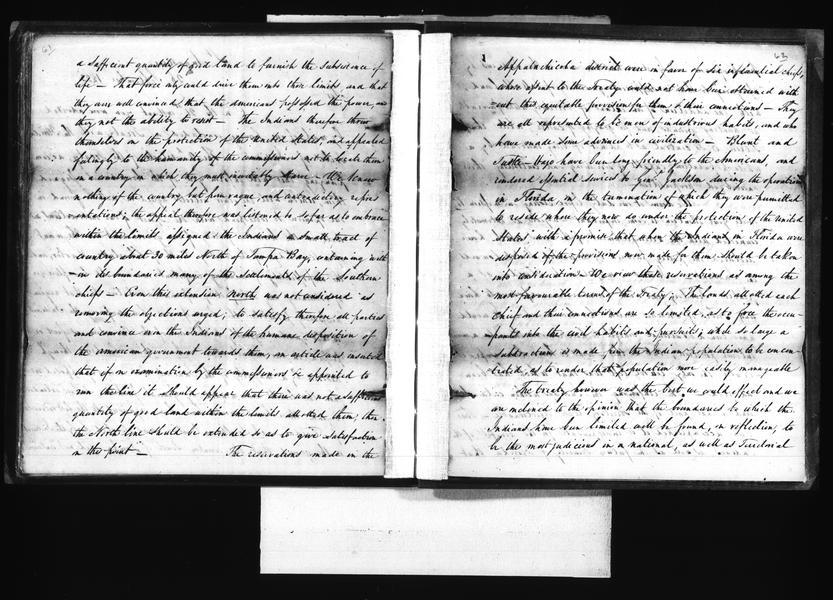 a sufficient quantity of good land to furnish the subsistence of
life — That force only could drive them into those limits, and that
they were well convinced that the Americans possessed the power, and
they not the ability to resist — The Indians therefore threw
themselves on the protection of the United States, and appealed
feelingly to the humanity of the commissioners not to locate them
in a country in which they must inevitably starve — We knew
nothing of the country but from vague and contradictory repres
entations; the appeal therefore was listened to so far as to embrace
within the limits assigned the Indians a small tract of
country about 30 miles North of Tampa Bay, containing with
in its boundaries many of the settlements of the Southern
chiefs — Even this extension north was not considered as
removing the objections urged; to satisfy therefore all parties
and convince even the Indians of the humane disposition of
the American government towards them, an article was inserted
that if on examination by the commissioners appointed to
run the line it should appear that there was not a sufficient
quantity of good land within the limits allotted them, then
the North line should be extended so as to give satisfaction
on this point —
The reservations made in the
63
Appalachicola district were in favor of six influential chiefs,
whose assent to the treaty could not have been obtained with
out this equitable provision for them & their connections — They
are all represented to be men of industrious habits, and who
have made some advances in civilization — Blunt and
Tuske-Hajo have been long friendly to the Americans, and
rendered essential services to Genl Jackson during the operations
in Florida, on the termination of which they were permitted
to reside where they now do under the protection of the United
States with a promise that when the Indians in Florida were
disposed of the provisions now made for them should be taken
into consideration — We view these reservations as among the
most favourable terms of the Treaty — The bounds allotted each
chief and their connections are so limited, as to force the occu-
pants into the civil habits and pursuits; while so large a
subtraction is made from the Indian population to be concen
trated, as to render that population more easily manageable
The treaty however was the best we could effect and we
are inclined to the opinion that the boundaries to which the
Indians have been limited will be found, on reflection, to
be the most judicious in a national, as well as Territorial